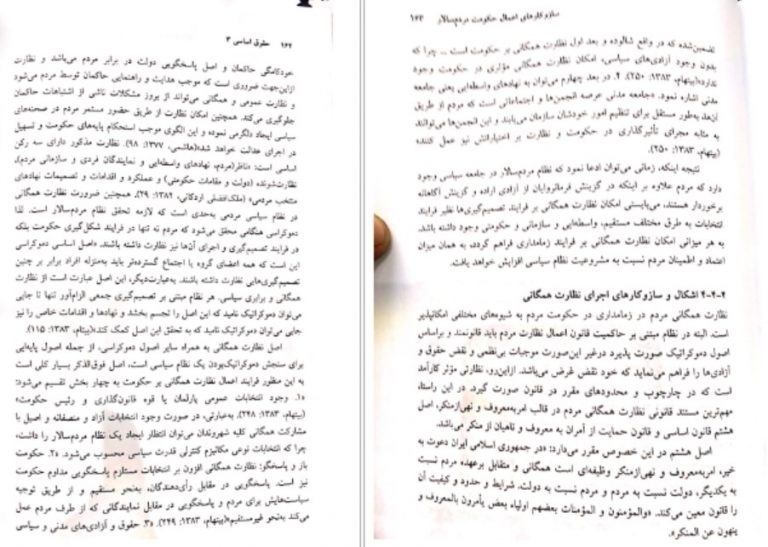 ۱۶۲ حقوق اساسی ۳
خودکامگی حاکمان و اصل پاسخگویی دولت در برابر مردم می‌باشد و نظارت
ازاین‌جهت ضروری است که موجب هدایت و راهنمایی حاکمان توسط مردم می‌شود
و نظارت عمومی و همگانی می‌تواند از بروز مشکلات ناشی از اشتباهات حاکمان
جلوگیری می‌کند. همچنین امکان نظارت از طریق حضور مستمر مردم در صحنه‌های
سیاسی ایجاد دلگرمی نموده و این الگوی موجب استحکام پایه‌های حکومت و تسهیل
در اجرای عدالت خواهد شد»(هاشمی، ۱۳۷۷: ۹۸). نظارت مذکور دارای سه رکن
اساسی است: «ناظر(مردم، نهادهای واسطه‌ایی و نمایندگان فردی و سازمانی مردم)،
نظارت‌شونده (دولت و مقامات حکومتی) و عملکرد و اقدامات و تصمیمات نهادهای
منتخب مردمی» (ملک‌افضلی اردکانی، ۱۳۸۲: ۴۹)، همچنین ضرورت نظارت همگانی
در نظام سیاسی مردمی به‌حدی است که لازمه تحقق نظام مردم‌سالار است. لذا
دموکراسی هنگامی محقق می‌شود که مردم نه تنها در فرایند شکل‌گیری حکومت بلکه
در فرایند تصمیم‌گیری و اجرای آن‌ها نیز نظارت داشته باشند. «اصل اساسی دموکراسی
این است که همه اعضای گروه یا اجتماع گسترده‌تر باید به‌منزله افراد برابر بر چنین
تصمیم‌گیری‌هایی نظارت داشته باشند. به‌عبارت‌دیگر، این اصل عبارت است از نظارت
همگانی و برابری سیاسی. هر نظام مبتنی بر تصمیم‌گیری جمعی الزام‌آور تنها تا جایی
می‌توان دموکراتیک نامید که این اصل را تجسم بخشد و نهادها و اقدامات خاص را نیز
جایی می‌توان دموکراتیک نامید که به تحقق این اصل کمک کند»(بیتهام، ۱۳۸۳: ۱۱۵).
اصل نظارت همگانی به همراه سایر اصول دموکراسی، از جمله اصول پایه‌ایی
برای سنجش دموکراتیک‌بودن یک نظام سیاسی است، اصل فوق‌الذکر بسیار کلی است
به این منظور فرایند اعمال نظارت همگانی بر حکومت به چهار بخش تقسیم می‌شود:
«۱. وجود انتخابات عمومی پارلمان یا قوه قانون‌گذاری و رئیس حکومت»
(بیتهام، ۱۳۸۳: ۲۴۸). به‌عبارتی، در صورت وجود انتخابات آزاد و منصفانه و اصیل با
مشارکت همگانی کلیه شهروندان می‌توان انتظار ایجاد یک نظام مردم‌سالار را داشت»
چرا که انتخابات نوعی مکانیزم کنترلی قدرت سیاسی محسوب می‌شود. «۲. حکومت
باز و پاسخگو: نظارت همگانی افزون بر انتخابات مستلزم پاسخگویی مداوم حکومت
نیز است. پاسخگویی در مقابل رأی‌دهندگان، به‌نحو مستقیم و از طریق توجیه
سیاست‌هایش برای مردم و پاسخگویی در مقابل نمایندگانی که از طرف مردم عمل
می‌کند به‌نحو غیرمستقیم»(بیتهام، ۱۳۸۳: ۲۴۹). «۳. حقوق و آزادی‌های مدنی و سیاسی
سازوکارهای اعمال حکومت مردم‌سالار ۱۶۳
تضمین‌شده که در واقع شالوده و بعد اول نظارت همگانی بر حکومت است ... چرا که
بدون وجود آزادی‌های سیاسی، امکان نظارت همگانی مؤثری در حکومت وجود
ندارد»(بیتهام، ۱۳۸۳: ۲۵۰). ۴. در بعد چهارم می‌توان به نهادهای واسطه‌ایی یعنی جامعه
مدنی اشاره نمود. «جامعه مدنی عرصه انجمن‌ها و اجتماعاتی است که مردم از طریق
آن‌هد به‌طور مستقل برای تنظیم امور خودشان سازمان می‌یابند و این انجمن‌ها می‌توانند
به مثابه مجرای تأثیرگذاری در حکومت و نظارت بر اختیاراتش نیز عمل کنند»
(بیتهام، ۱۳۸۳: ۲۵۰).
نتیجه اینکه، زمانی می‌توان ادعا نمود که نظام مردم‌سالار در جامعه سیاسی وجود
دارد که مردم علاوه بر اینکه در گزینش فرمانروایان از آزادی اراده و گزینش آگاهانه
برخوردار هستند، می‌بایستی امکان نظارت همگانی بر فرایند تصمیم‌گیری‌ها نظیر فرایند
انتخابات به طرق مختلف مستقیم، واسطه‌ایی و سازمانی و حکومتی وجود داشته باشد.
به هر میزانی امکان نظارت همگانی بر فرایند زمامداری فراهم گردد، به همان میزان
اعتماد و اطمینان مردم نسبت به مشروعیت نظام سیاسی افزایش خواهد یافت.
۴-۴-۴ اشکال و سازوکارهای اجرای نظارت همگانی
نظارت همگانی مردم در زمامداری در حکومت مردم به شیوه‌های مختلفی امکانپذیر
است. البته در نظام مبتنی بر حاکمیت قانون اعمال نظارت مردم باید قانونمند و براساس
اصول دموکراتیک صورت پذیرد درغیر این‌صورت موجبات بی‌نظمی و نقض حقوق و
آزادی‌ها را فراهم می‌نماید که خود نقض غرض می‌باشد. ازاین‌رو، نظارتی مؤثر کارآمد
است که در چارچوب و محدودهای مقرر در قانون صورت گیرد. در این راستا،
مهم‌ترین مستند قانونی نظارت همگانی مردم در قالب امربه‌معروف و نهی‌ازمنکر، اصل
هشتم قانون اساسی و قانون حمایت از آمران به معروف و ناهیان از منکر می‌باشد.
اصل هشتم در این خصوص مقرر می‌دارد: «در جمهوری اسلامی ایران دعوت به
خیر، امربه‌معروف و نهی‌ازمنکر وظیفه‌ای است همگانی و متقابل برعهده مردم نسبت
به یکدیگر، دولت نسبت به مردم و مردم نسبت به دولت. شرایط و حدود و کیفیت آن
را قانون معین می‌کند. «والمؤمنون و المؤمنات بعضهم اولیاء بعض یأمرون بالمعروف و
ینهون عن المنکر».